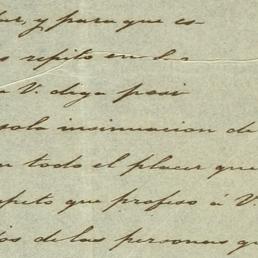 y para que es-
repito en la
V. diga posi
sola insinuacion de
todo el placer que
peto que profeso á V.
os de las personas q